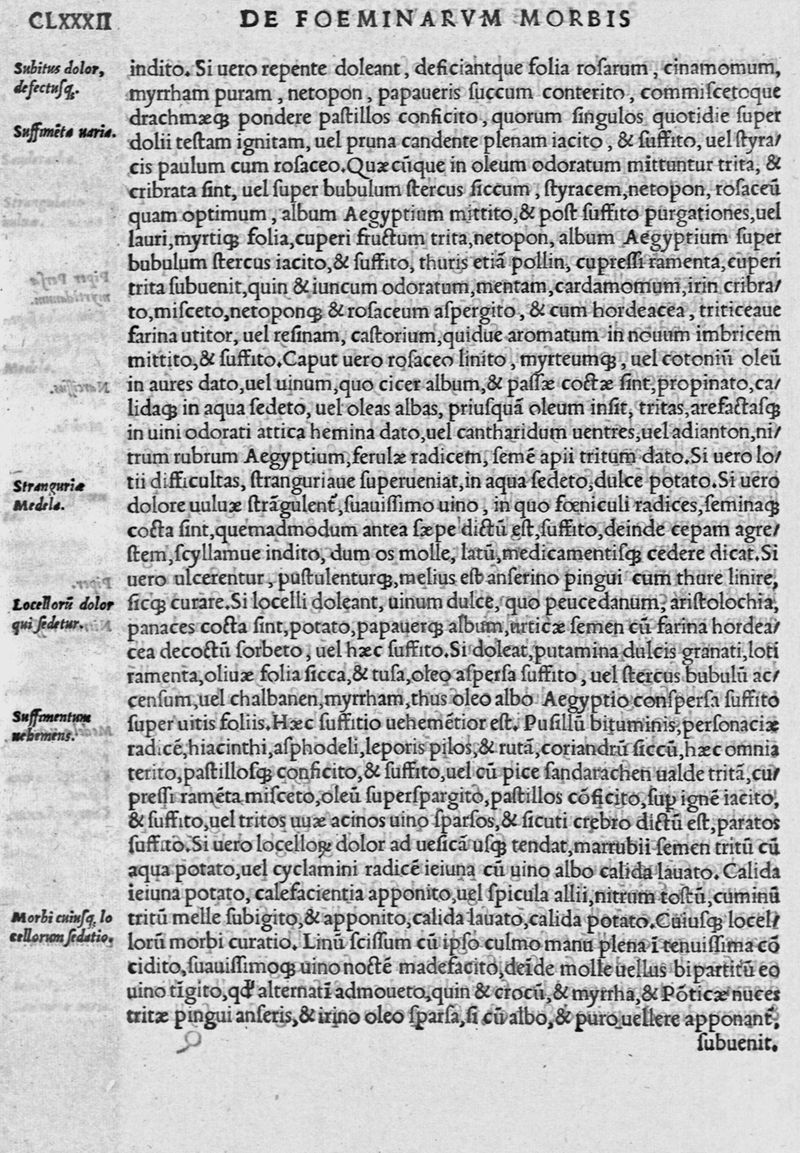 CLXXXII DE FOEMINARVM MORBIS
Subitus dolor,
defectusq́;.
Suffimēta uaria.
indito. Si uero repente doleant, deficiantque folia rosarum, cinamomum,
myrrham puram, netopon, papaueris succum conterito, commiscetoque
drachmæq́; pondere pastillos conficito, quorum singulos quotidie super
dolii testam ignitam, uel pruna candente plenam iacito, & suffito, uel styra/
cis paulum cum rosaceo. Quæcūque in oleum odoratum mittuntur trita, &
cribrata sint, uel super bubulum stercus siccum, styracem, netopon, rosaceū
quam optimum, album Aegyptium mittito, & post suffito purgationes, uel
lauri, myrtiq́; folia, cuperi fructum trita, netopon, album Aegyptium super
bubulum stercus iacito, & suffito, thuris etiā pollin, cupressi ramenta, cuperi
trita subuenit, quin & iuncum odoratum, mentam, cardamomum, irin cribra/
to, misceto, netoponq́; & rosaceum aspergito, & cum hordeacea, triticeaue
farina utitor, uel resinam, castorium, quidue aromatum in nouum imbricem
mittito, & suffito. Caput uero rosaceo linito, myrteumq́;, uel cotoniū oleū
in aures dato, uel uinum, quo cicer album, & passæ coctæ sint, propinato, ca/
lidaq́; in aqua sedeto, uel oleas albas, priusquā oleum insit, tritas, arefactasq́;
in uini odorati attica hemina dato, uel cantharidum uentres, uel adianton, ni/
trum rubrum Aegyptium, ferulæ radicem, semē apii tritum dato. Si uero lo/
Stranguriæ
Medela.
tii difficultas, stranguriaue superueniat, in aqua sedeto, dulce potato. Si uero
dolore uuluæ strāgulent́, suauissimo uino, in quo fœniculi radices, seminaq́;
cocta sint, quemadmodum antea sæpe dictū est, suffito, deinde cepam agre/
stem, scyllamue indito, dum os molle, latū, medicamentisq́; cedere dicat. Si
uero ulcerentur, pustulenturq́;, melius est anserino pingui cum thure linire,
Locellorū dolor
qui sedetur.
sicq́; curare. Si locelli doleant, uinum dulce, quo peucedanum, aristolochia,
panaces cocta sint, potato, papauerq́; album, urticæ semen cū farina hordea/
cea decoctū sorbeto, uel hæc suffito. Si doleat, putamina dulcis granati, loti
ramenta, oliuæ folia sicca, & tusa, oleo aspersa suffito, uel stercus bubulū ac/
censum, uel chalbanen, myrrham, thus oleo albo Aegyptio conspersa suffito
Suffimentum
uehemens.
super uitis foliis. Hæc suffitio uehemētior est. Pusillū bituminis, personaciæ
radicē, hiacinthi, asphodeli, leporis pilos, & rutā, coriandrū siccū, hæc omnia
terito, pastillosq́; conficito, & suffito, uel cū pice sandarachen ualde tritā, cu/
pressi ramēta misceto, oleū superspargito, pastillos cōficito, sup ignē iacito,
& suffito, uel tritos uuæ acinos uino sparsos, & sicuti crebro dictū est, paratos
suffito. Si uero locelloꝝ dolor ad uesicā usq́; tendat, marrubii semen tritū cū
aqua potato, uel cyclamini radicē ieiuna cū uino albo calida lauato. Calida
ieiuna potato, calefacientia apponito, uel spicula allii, nitrum tostū, cuminū
Morbi cuiusq́; lo
cellorum sedatio.
tritū melle subigito, & apponito, calida lauato, calida potato. Cuiusq́; locel/
lorū morbi curatio. Linū scissum cū ipso culmo manu plena ī tenuissima cō
cidito, suauissimoq́; uino noctē madefacito, deīde molle uellus bipartitū eo
uino tīgito, qd́ alternatī admoueto, quin & crocū, & myrrha, & Pōticæ nuces
tritæ pingui anseris, & irino oleo sparsa, si cū albo, & puro uellere apponant́,
subuenit.